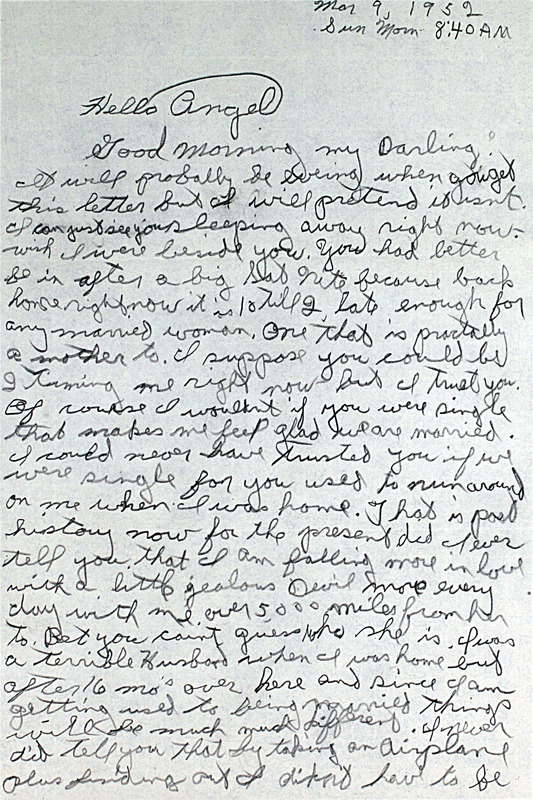 Mar 9, 1952
Sun Morn 8:40 AM
Hello Angel
Good Morning my Darling!
It will probably be evening when you get
this letter but I will pretend it isn't.
I can just see you sleeping away right now-
wish I were beside you. You had better
be in after a big Sat Nite because back
home right now it is 10 till 2, late enough for
any married woman, One that is practally
a mother to. I suppose you could be
2 timing me right now but I trust you.
Of course I wouldn't if you were single
that makes me feel glad we are married.
I could never have trusted you if we
were single for you used to run around
on me when I was home. That is past
history now for the present did I ever
tell you that I am falling more in love
with a little jealous Devil more every
day with me over 5000 miles from her
to. Bet you can't guess who she is. I was
a terrible Husband when I was home but
after 16 mo's over here and since I am
getting used to being married things
will be much much different. I never
did tell you that by taking an airplane
plus finding out I didn't have to be